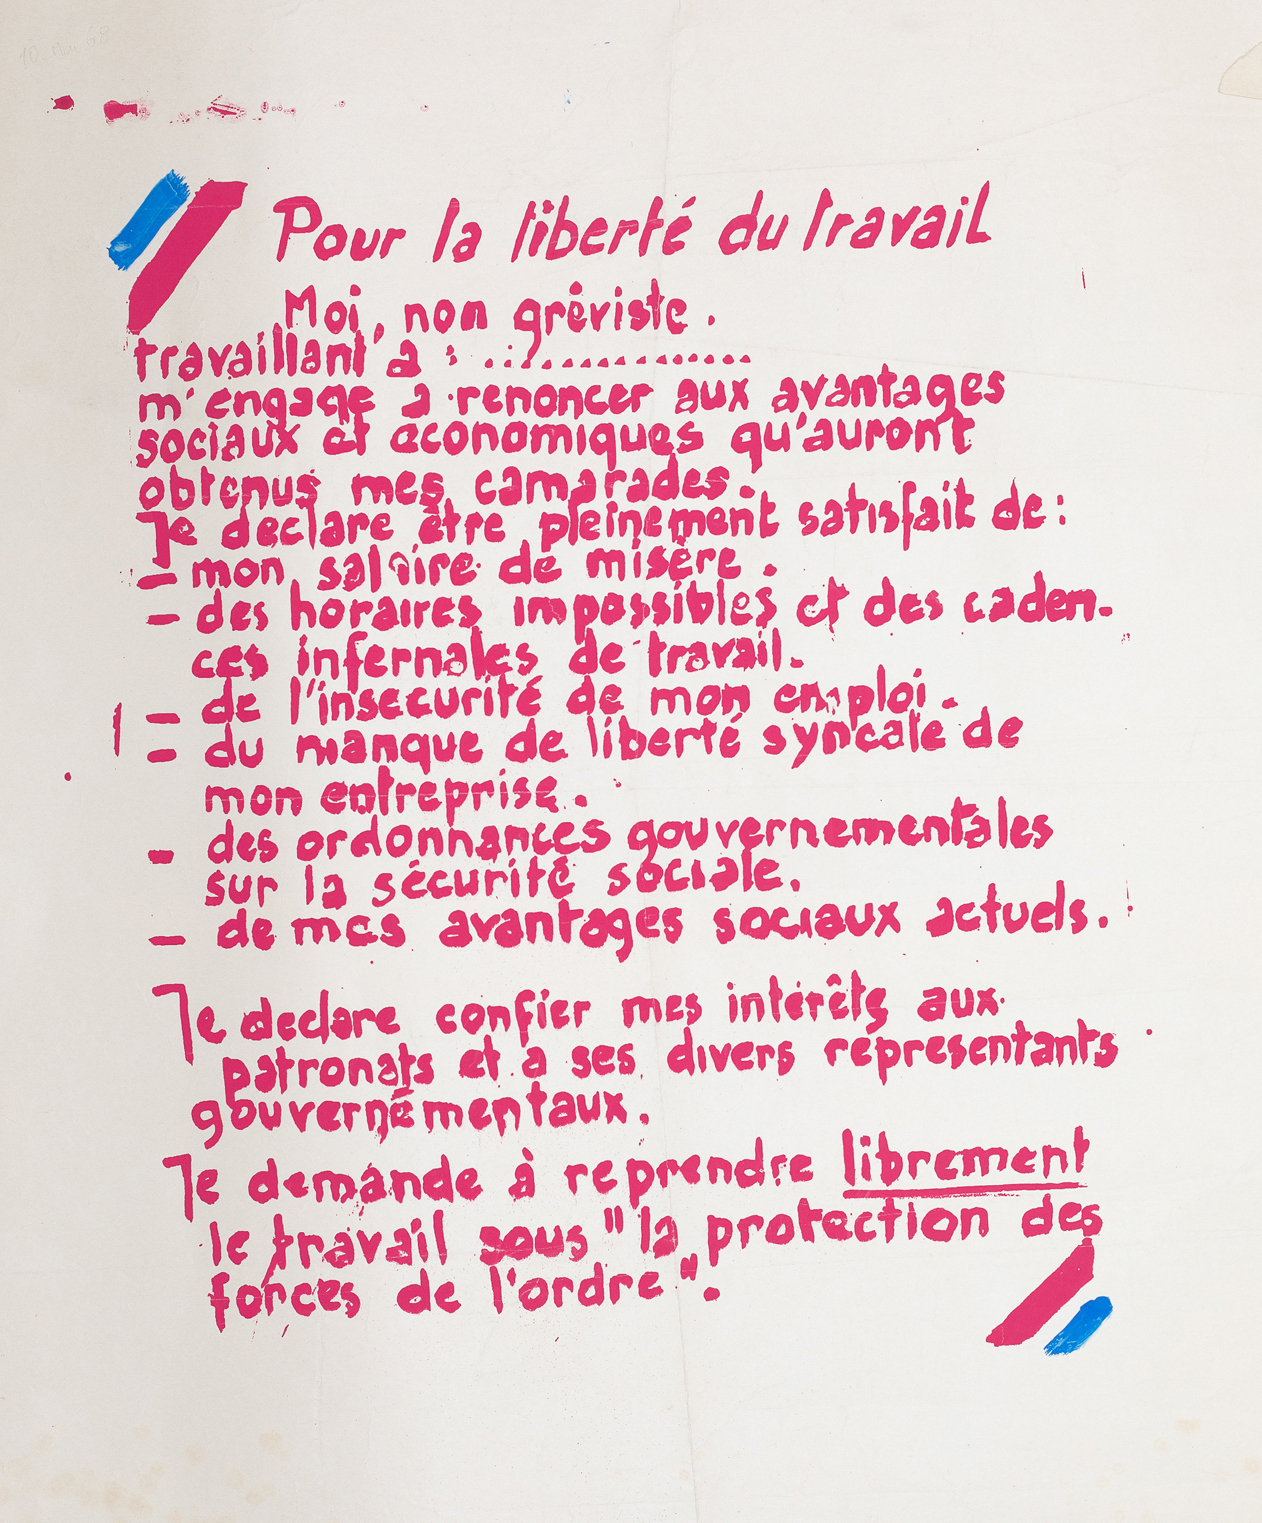 Pour la liberté du travail
Moi, non grêviste.
travaillant à : ................
m'engage a renoncer aux avantages
sociaux et économiques qu'auront
obtenus mes camarades.
Je declare être pleinement satisfait de :
— mon salaire de misère.
— des horaires impossibles et des caden-
ces infernales de travail.
— de l'insecurité de mon emploi.
— du manque de liberté syncale de
mon entreprise.
— des ordonnances gouvernementales
sur la sécurité sociale.
— de mes avantages sociaux actuels.
Je declare confier mes intérêts aux
patronats et a ses divers représentants
gouvernémentaux.
Je demande à reprendre librement
le travail sous "la protection des
forces de l'ordre".